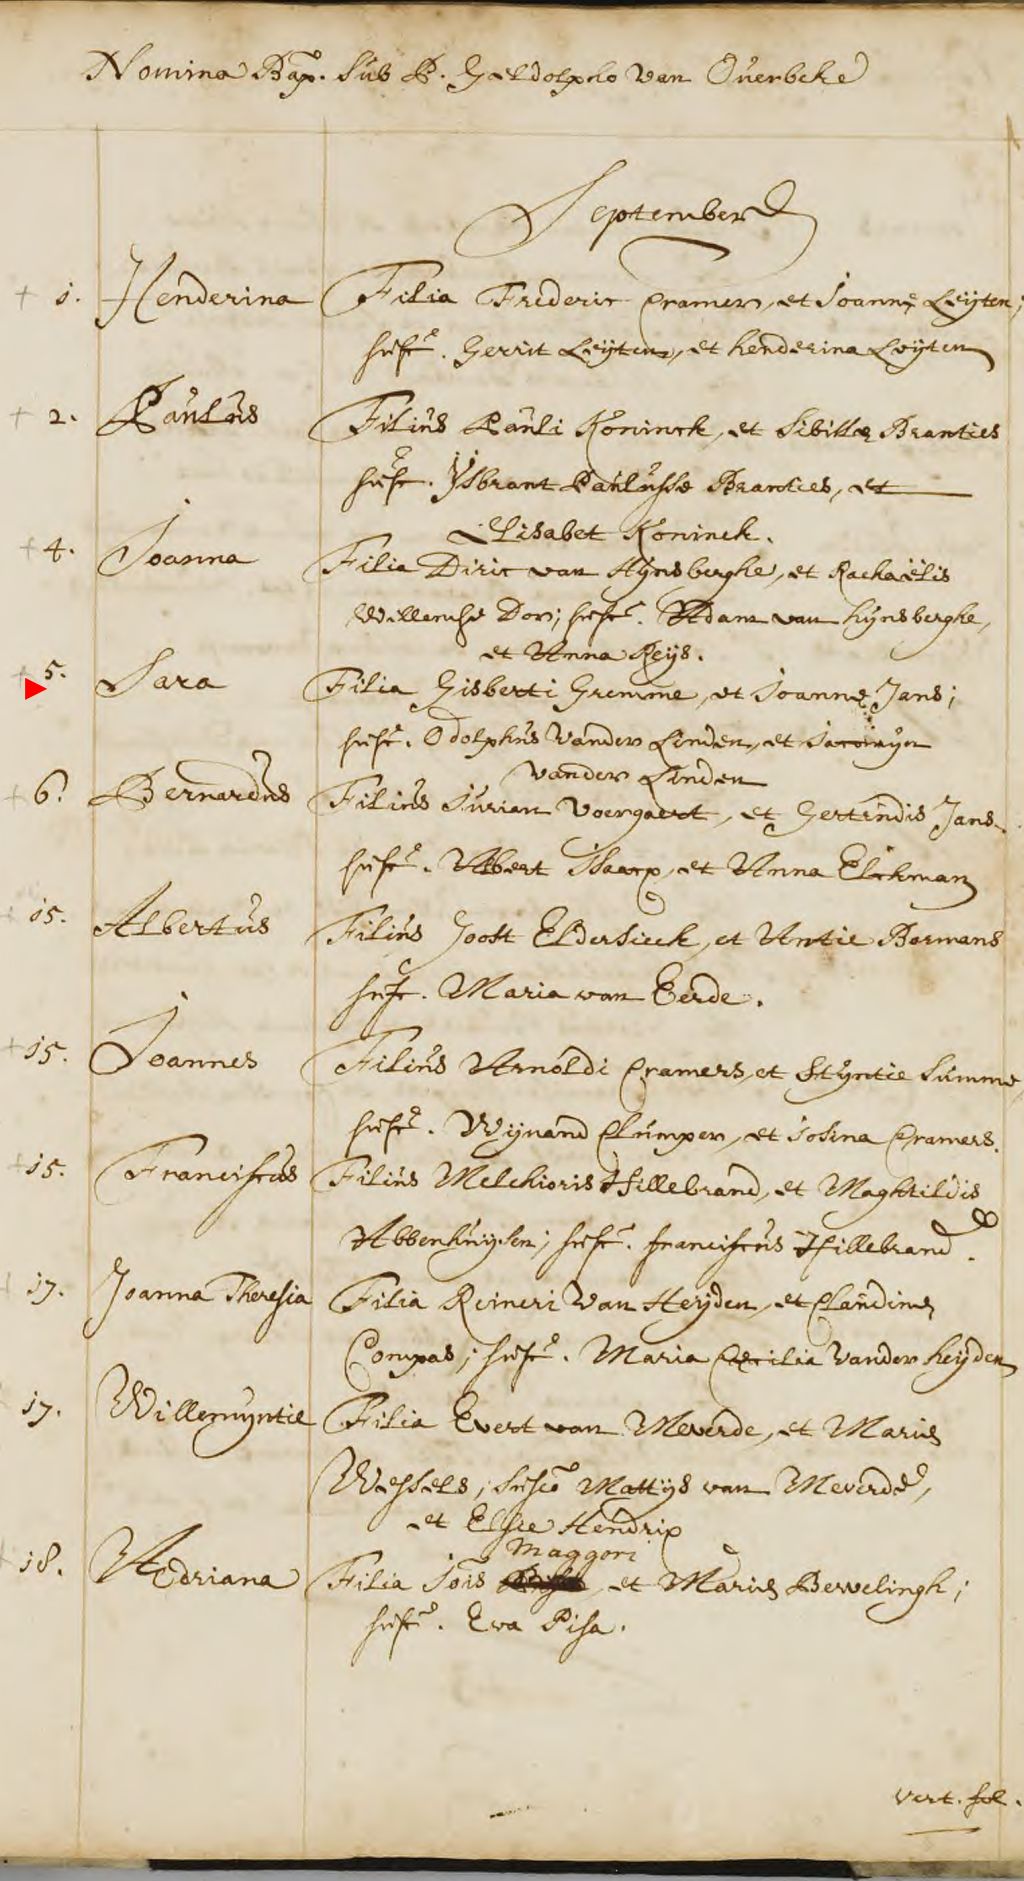 Nomina Bap. sub P. Geldolpho van Overbeke
September
+ 1. Henderina Filia Frederic Cramers, et Joannę Leijten;
susc. Gerrit Leijten, et henderina Leijten
+ 2. Paulus Filius Pauli Koninck, et Sibillę Branties
susc. Ysbrant Paulusse Branties, et
Elisabet Koninck.
+ 4. Joanna Filia Diric van Hijnsberghe, et Rachaëlis
Willemse Dor; susc. Adam van hijnsberghe,
et Anna Reijs.
+ 5. Sara Filia Gisberti Gremme, et Joannę Jans;
susc. Odolphus vander Linden, et Jacomijn
vander Linden
+ 6. Bernardus Filius Jurian Voergaert, et Gertrudis Jans.
susc. Albert et Anna Elckman
15. Albertus Filius Joost Eldersieck, et Antie Bormans
susc. Maria van Eerde.
+ 15. Joannes Filius Arnoldi Cramers, et Styntie Summe,
susc. Wijnand Clumper, et Josina Cramers.
+ 15. Franciscus Filius Melchioris Hillebrand, et Maghtildis
Abbenhuijsen; susc. franciscus Hillebrand.
17. Joanna Theresia Filia Reineri van Heijden, et Claudinę
Compas; susc. Maria Cęcilia vander heijden
17. Willemyntie Filia Evert van Meverde, et Marię
Wessels; susc. Mattijs van Meverde,
et Elsie Hendrix
Maggori
+ 18. Adriana Filia Jois et Marię Bewelingh;
susc. Eva Pisa.
vert. fol.